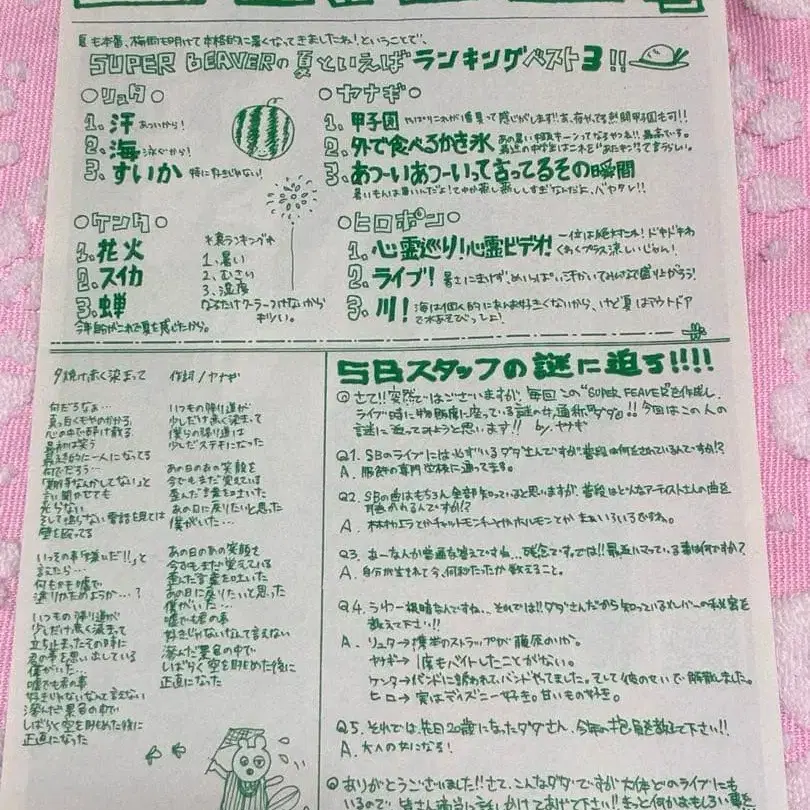 夏も本番、梅雨も明けて本格的に暑くなってきましたね！ということで、
SUPER BEAVERの夏といえばランキングベスト3!!
○リュウタ○
1. 汗 あついから！
2. 海 泳ぐから！
3. すいか 特に好きじゃない！
○ヤナギ○
1. 甲子園 やはりこれが1番夏って感じがします!!あ、有ヶ丈る熱闘甲子園も可!!
2. 外で食べるかき氷 あの暑い中頭キーンってなるやつね!!最高です。
3. あつーいあつーいって言ってるその瞬間
暑いもんは暑いんだよ!
バヤタレ!!
○ケンタ○
1. 花火
2. スイカ
3. 蝉
今年的がこれで夏を感じたから。
*裏ランキング*
1. 暑い
2. むさい
3. 湿度
なるたけクーラーつけないから
キツい。
○ヒロポン○
1. 心霊巡り!心霊ビデオ! 一位は絶対これ!ドキドキわくわくプラス涼しいじゃん!
2. ライブ! 暑さにまけずめいっぱい汗かいてみんなで盛り上がろう!
3. 川! 海は個人的にあまり好きくないから、けど夏はアウトドアで水あそびっしょ!
夕焼け赤く染まって 作詞/ヤナギ
何だろなぁ…
真っ白くもやのかかる
心の中で
最初は笑う
最終的に一人になってる
何でだろう…
「期待なんかしてない」と
言い聞かせても
光らない
そして鳴らない電話を見ては
壁を殴ってる
いっその事「嫌いだ!!」と
言えたら…
何もかも嘘で
塗りかためようか…?
いつもの帰り道が
少しだけ赤く染まって
立ち止まったその時に
君の事を思い出している
僕がいた…
嘘でも君の事
好きじゃないなんて言えない
滲んだ景色の中で
しばらく空を眺めた後に
正直になった
いつもの帰り道が
少しだけ赤く染まって
僕らの帰り道は
少しだけステキになった
あの日のあの笑顔を
今でもまだ覚えている
歪んだ言葉を吐いた
あの日に戻りたいと思った
僕がいた…
あの日のあの笑顔を
今でもまだ覚えている
歪んだ言葉を吐いた
あの日に戻りたいと思った
僕がいた…
嘘でも君の事
好きじゃないなんて言えない
滲んだ景色の中で
しばらく空を眺めた後に
正直になった
SBスタッフの謎に迫る!!!!
さて!!突然ではございますが、毎回この"SUPER FEAVER"を作成し、
ライブ時に物販席に座っている謎の女、通称"ダダ"!!今回はこの人の
謎に迫ってみようと思います!! by.ヤナギ
Q1. SBのライブには必ずいるダダさんですが普段は何をされているんですか!?
A. 服飾の専門学校に通ってます。
Q2. SBの曲はもちろん全部知っていると思いますが、普段はどんなアーティストさんの曲を
聴かれるんですか!?
A. 林林ようとかチャットモンチーとかホルモンとか まぁいろいろですね。
Q3. あー なんか普通な答えですね…残念です。では!!最近ハマっている事は何ですか?
A. 自分が生まれて今、何秒たったか数えること。
Q4. うわー 根暗なんですね、、それでは!!ダダさんだから知っているメンバーの秘密を
教えて下さい!!
A. リュウタ→携帯のストラップが藤原のりか。
ヤナギ→1度もバイトしたことがない。
ケンタ→バンドに誘われてバンドやってました。そして彼のせいで解散しました。
ヒロ→実はディズニー好き。甘いもの好き。
Q5. それでは先日20歳になったダダさん、今年の抱負を教えて下さい!!
A. 大人の女になる!
ありがとうございました!!さて、こんなダダですが大体どのライブにも
いるので、皆さん適当に話しかけてあげて下さい!!きっと何かおもしろい事を